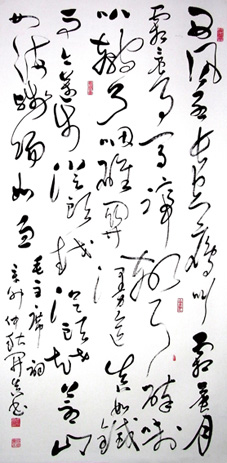 西风烈长空雁叫霜晨月
霜晨月马蹄声碎喇
叭声咽雄关漫道真如铁
而今迈步从头越从头越苍山
如海残阳如血
毛主席词
辛卯仲秋